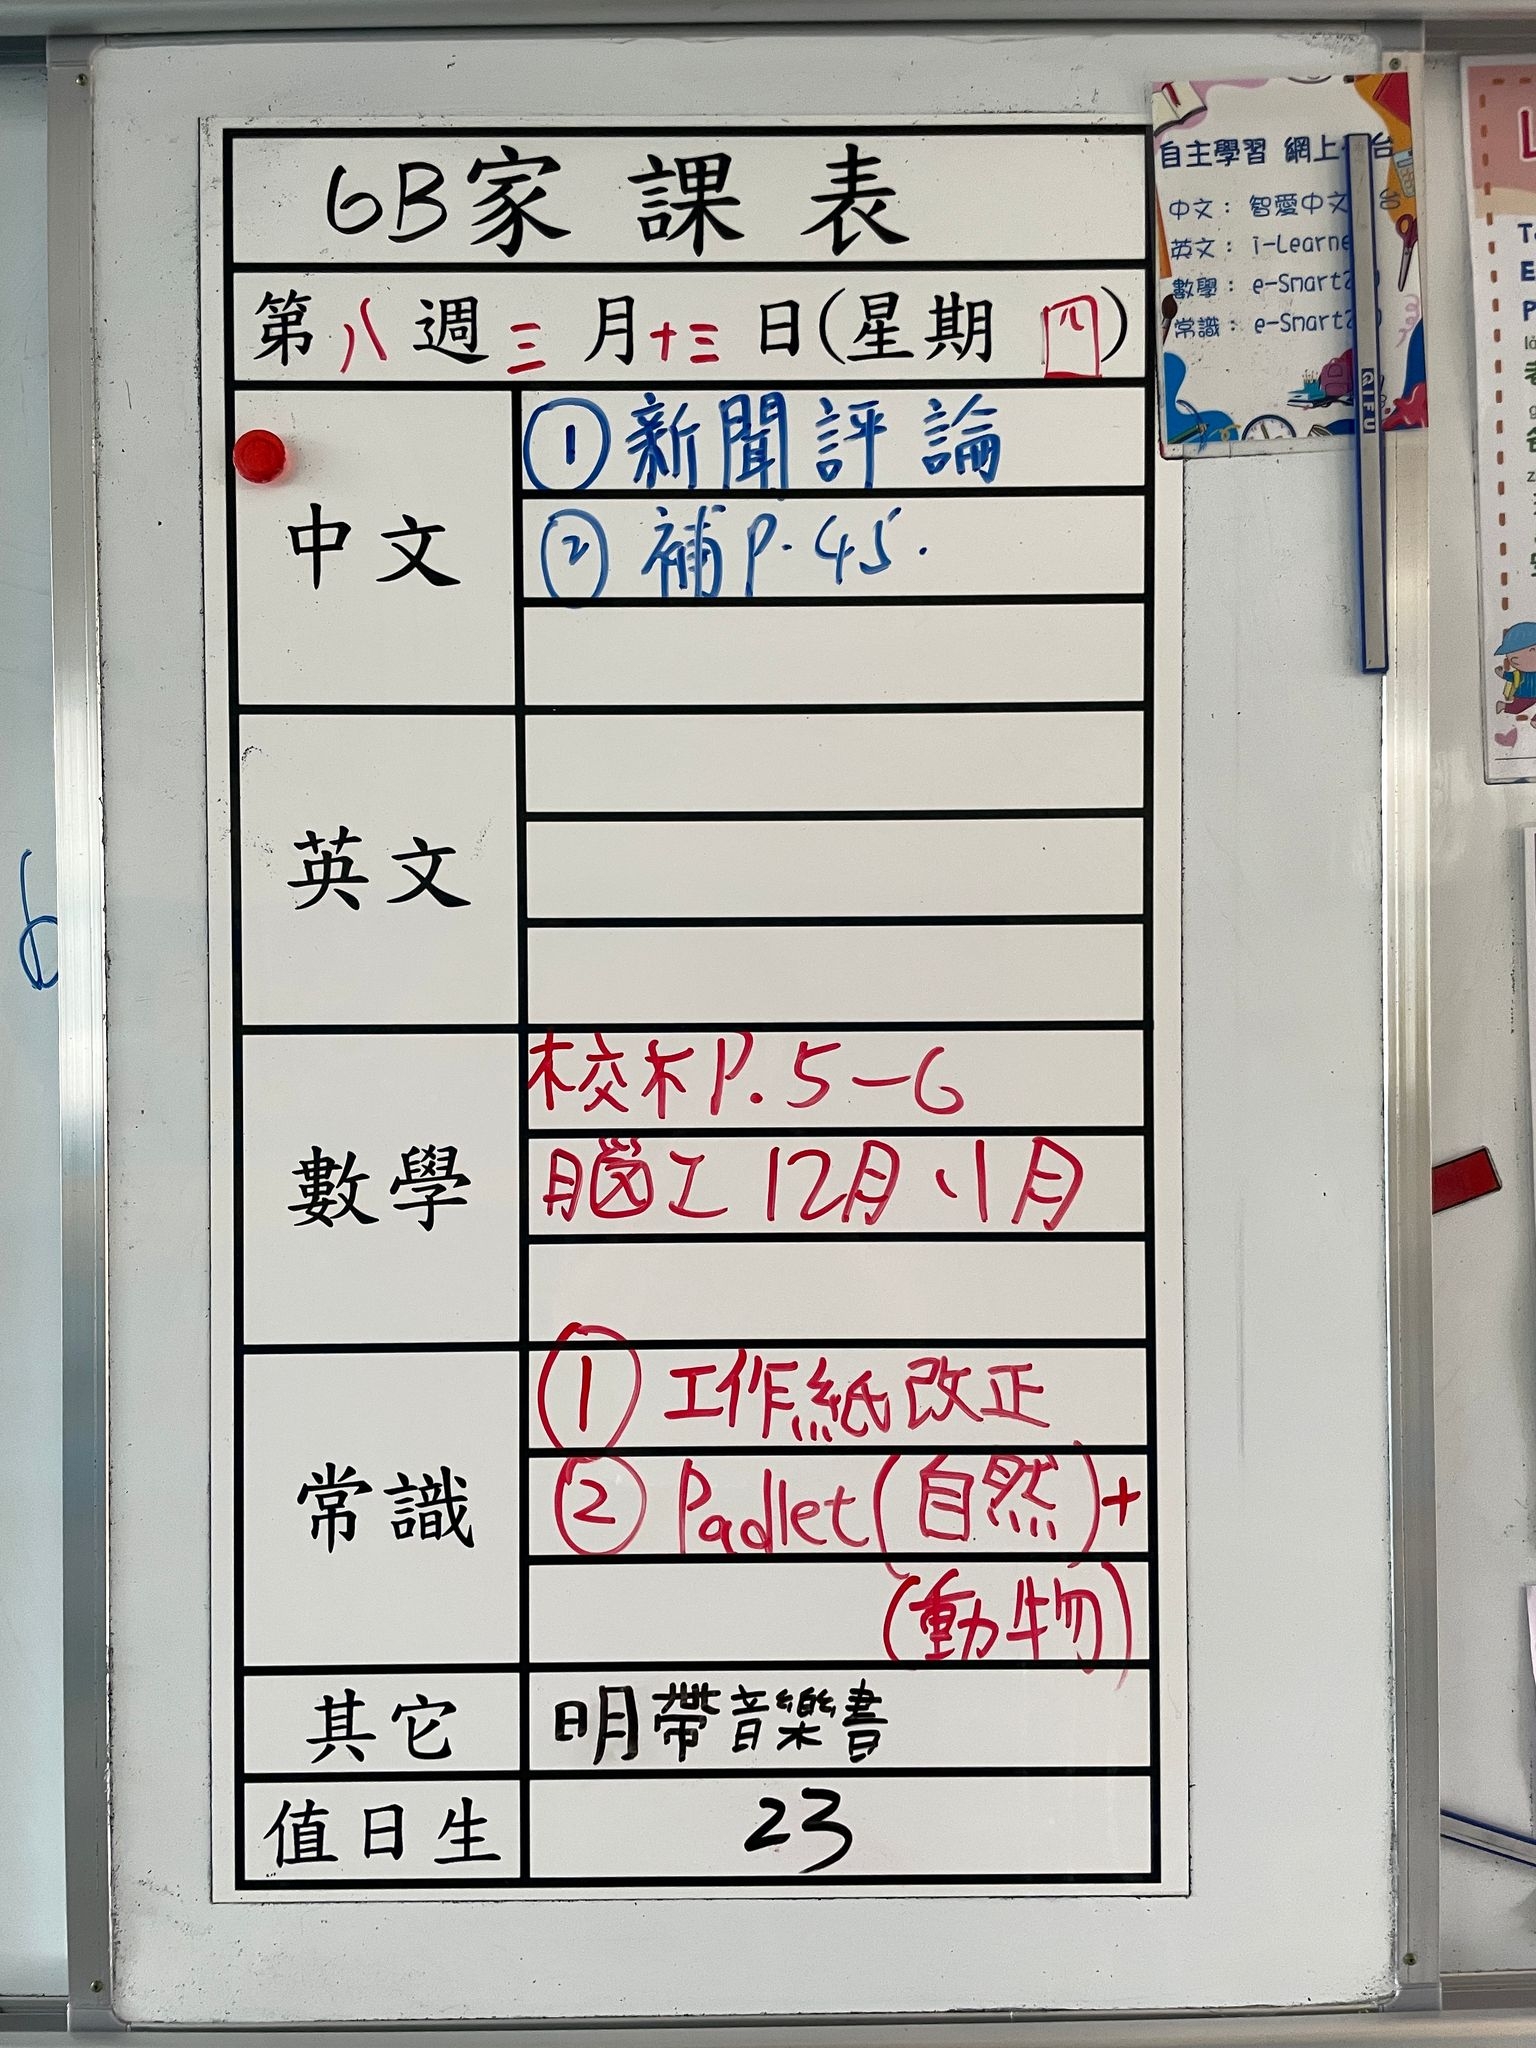 6B家課表
第八週三月十三日(星期四)
中文
①新聞評論
②補P.45.
英文
數學
校本P.5-6
腦工12月、1月
常識
①工作紙改正
②Padlet(自然)+
(動物)
其它
明帶音樂書
值日生
23
自主學習 網上台
中文: 智愛中文台
英文: i-Learne
數學: e-Smart
常識: e-Smart
QIFU
6